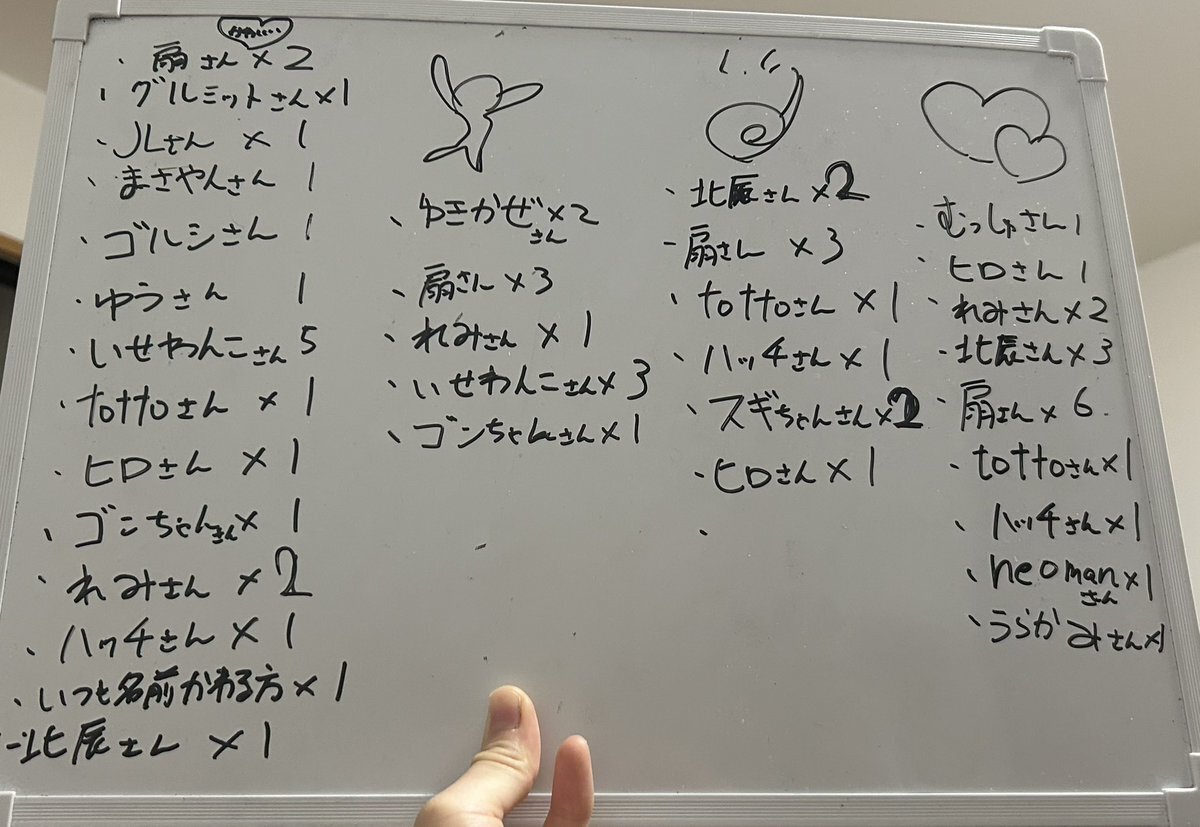 かわいい
・扇さん×2
・グルミットさん×1
・JLさん×1
・まさやんさん 1
・ゴルシさん 1
・ゆうさん 1
・いせわんこさん 5
・tottoさん×1
・ヒロさん×1
・ゴンちゃんさん×1
・れみさん×2
・ハッチさん×1
・いつも名前かわる方×1
・北辰さん×1
・ゆきかぜさん×2
・扇さん×3
・れみさん×1
・いせわんこさん×3
・ゴンちゃんさん×1
・北辰さん×2
・扇さん×3
・tottoさん×1
・ハッチさん×1
・スギちゃんさん×2
・ヒロさん×1
・
・むっしゅさん 1
・ヒロさん 1
・れみさん×2
・北辰さん×3
・扇さん×6
・tottoさん×1
・ハッチさん×1
・neomanさん×1
・うらかみさん×1